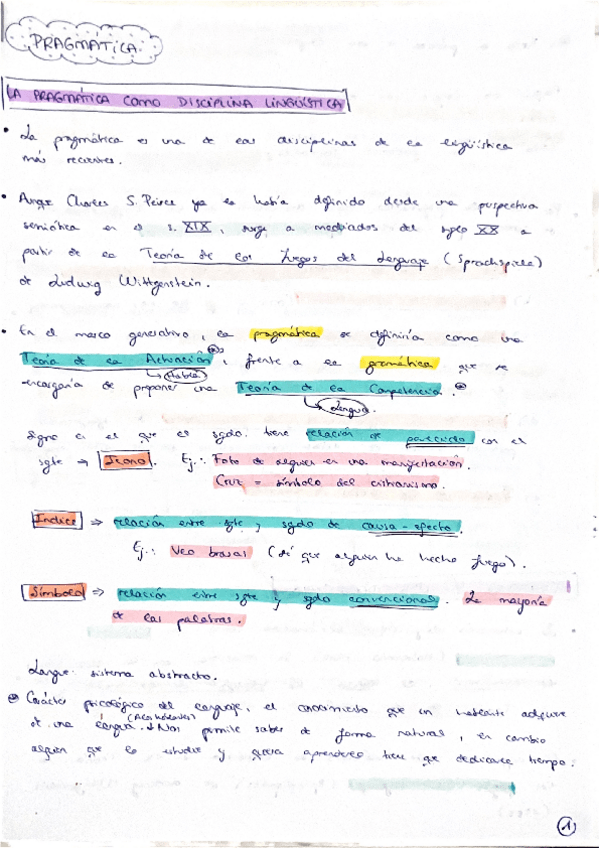 PRAGMÁTICA.
LA PRAGMÁTICA COMO DISCIPLINA LINGÜÍSTICA
• La pragmática es una de las disciplinas de la lingüística
más recientes.
• Aunque Charles S. Peirce ya la había definido desde una perspectiva
semiótica en el s. XIX, surge a mediados del siglo XX a
partir de la Teoría de los Juegos del Lenguaje (Sprachspiele)
de Ludwig Wittgenstein.
• En el marco generativo, la pragmática se definiría como una
Teoría de la Actuación, frente a la gramática que se
↳ Habla
encargaría de proponer una Teoría de la Competencia.
↳ Lengua.
Signo en el que el sgdo. tiene relación de parecido con el
sgte → Icono. Ej.: Foto de alguien en una manifestación.
Cruz = símbolo del cristianismo.
Índice ⇒ relación entre sgte y sgdo de causa-efecto.
Ej.: Veo brasas (sé que alguien ha hecho fuego).
Símbolo ⇒ relación entre sgte y sgdo convencional. La mayoría
de las palabras.
Langue: sistema abstracto.
Carácter psicológico del lenguaje, el conocimiento que un hablante adquiere
de una lengua. Nos permite saber de forma natural, en cambio
alguien que lo estudie y quiera aprenderlo tiene que dedicarle tiempo.
1